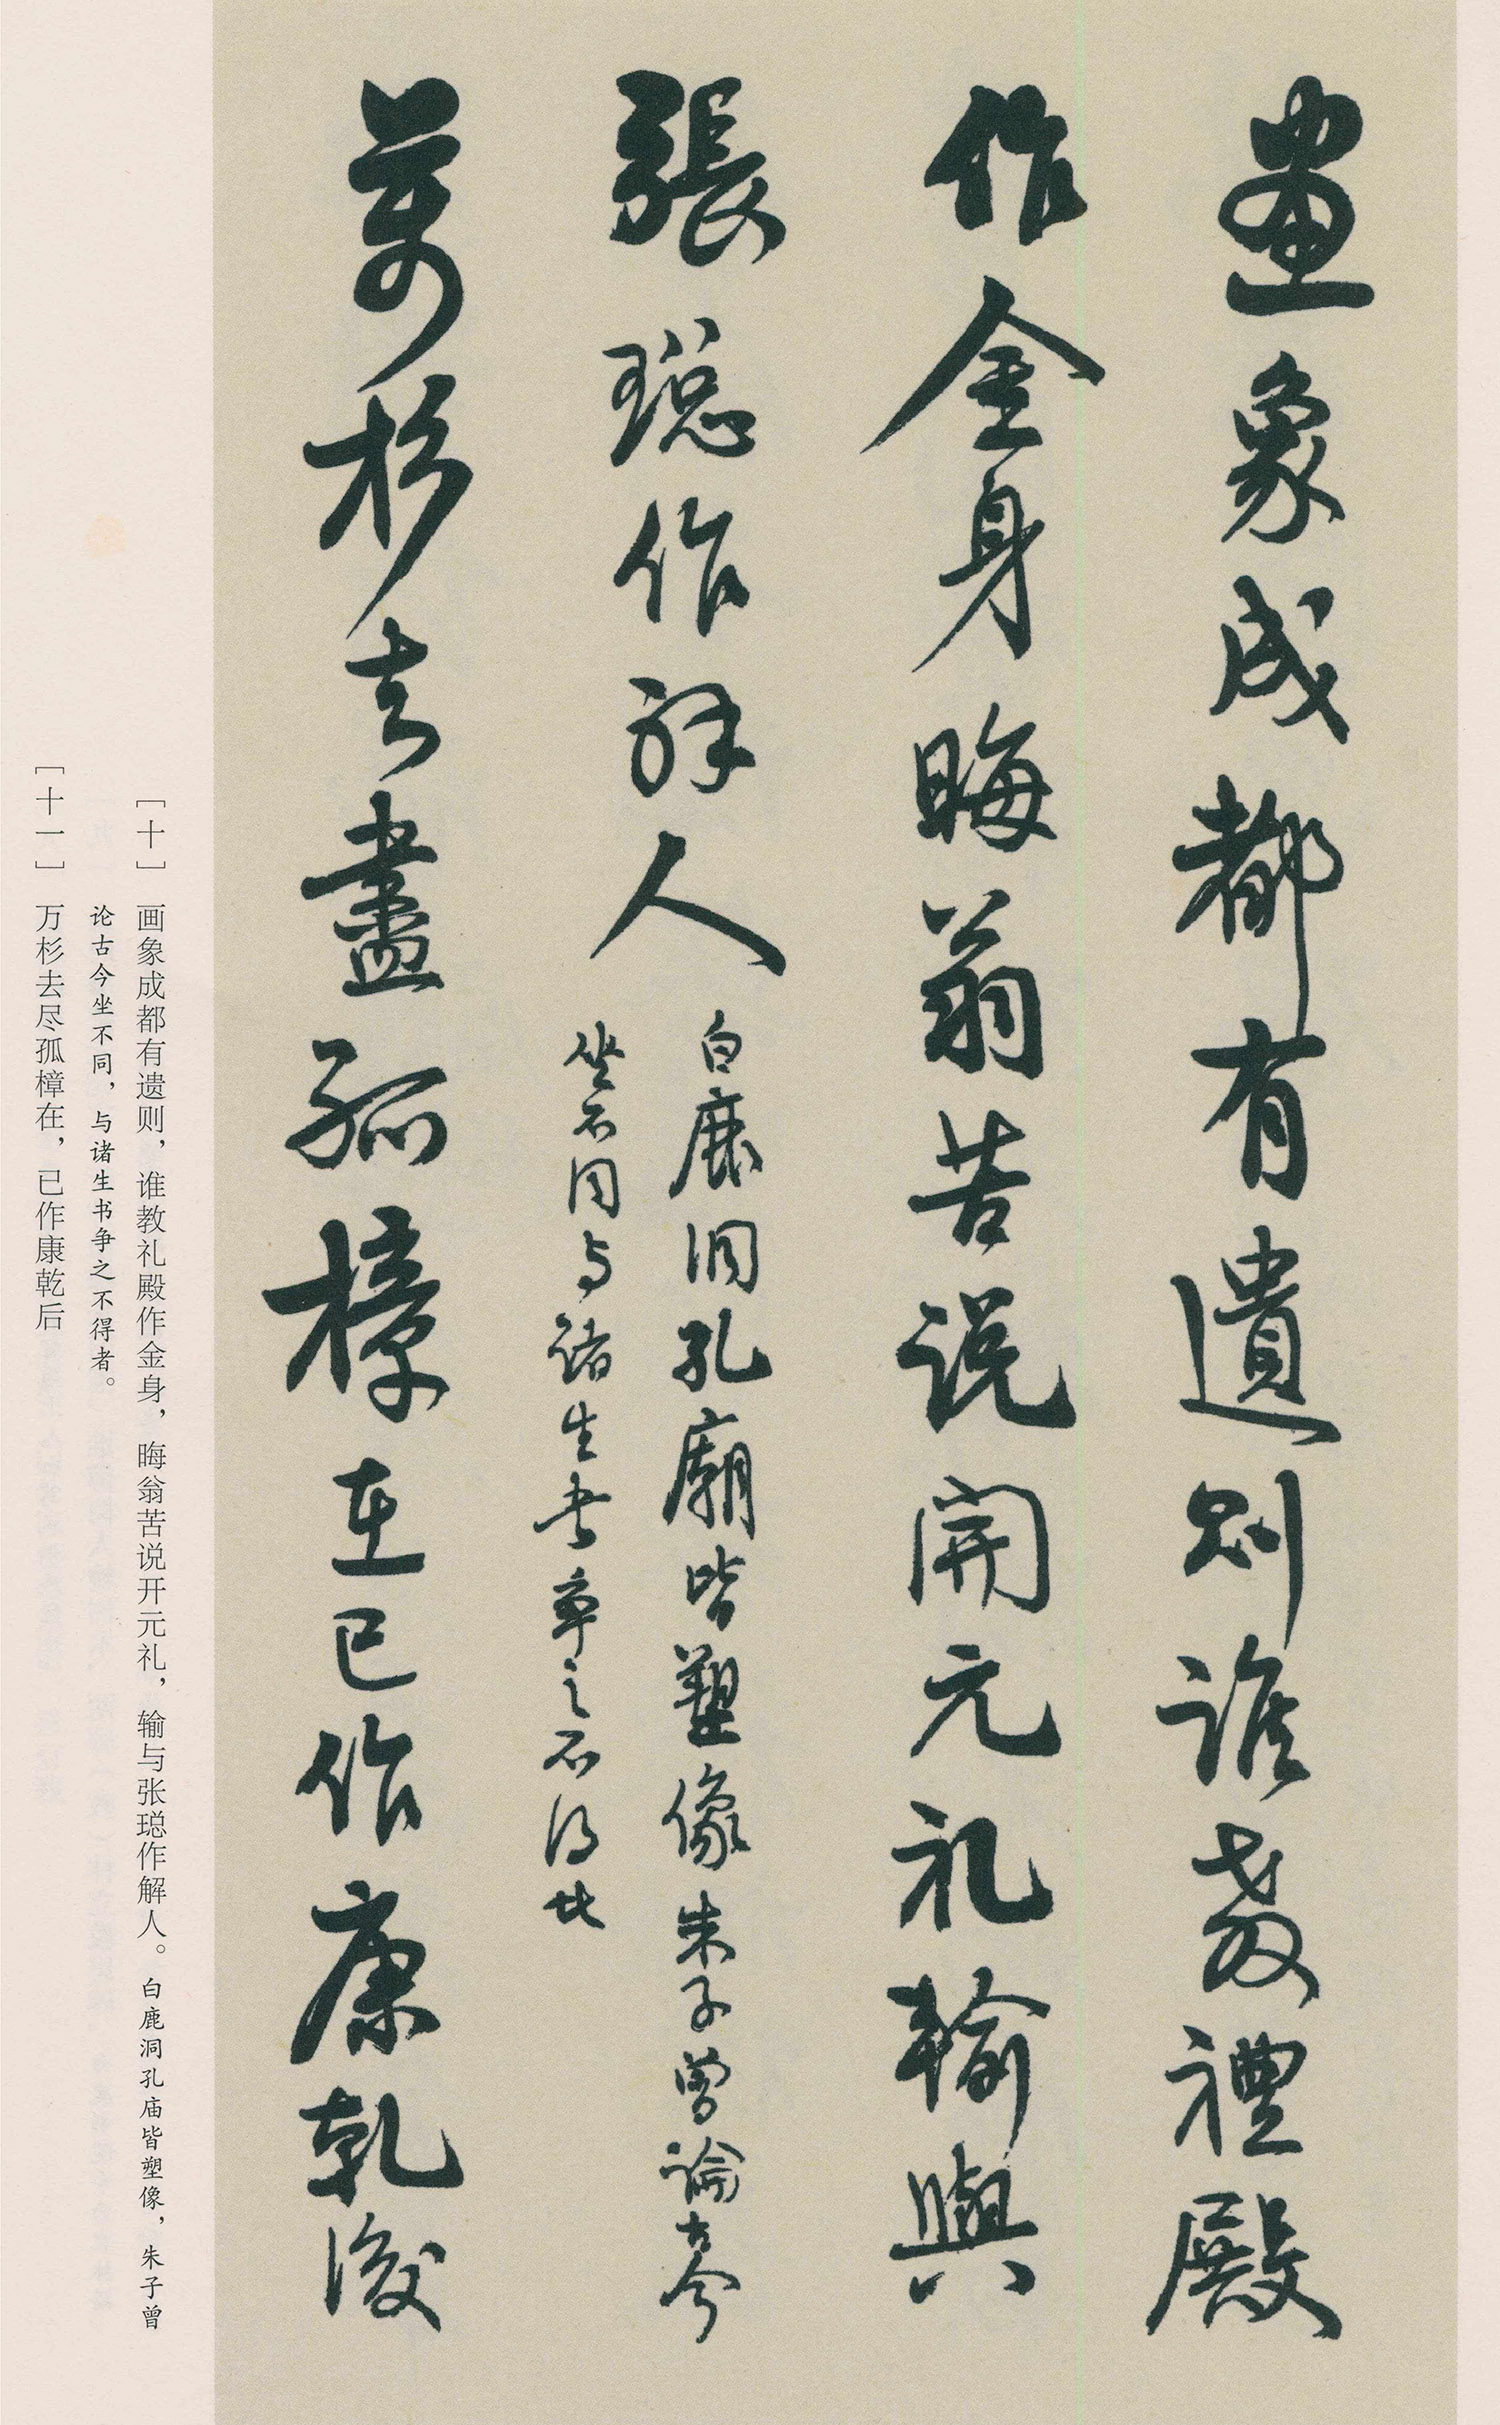 畫象成都有遺則誰教禮殿
作金身晦翁苦说開元礼輸與
張璁作解人
白鹿洞孔廟皆塑像朱子曾論古今
坐不同与诸生书争之不得者
萬杉去盡孤樟在已作康乾後
［十］ 画象成都有遗则，谁教礼殿作金身，晦翁苦说开元礼，输与张璁作解人。白鹿洞孔庙皆塑像，朱子曾
论古今坐不同，与诸生书争之不得者。
［十一］ 万杉去尽孤樟在，已作康乾后